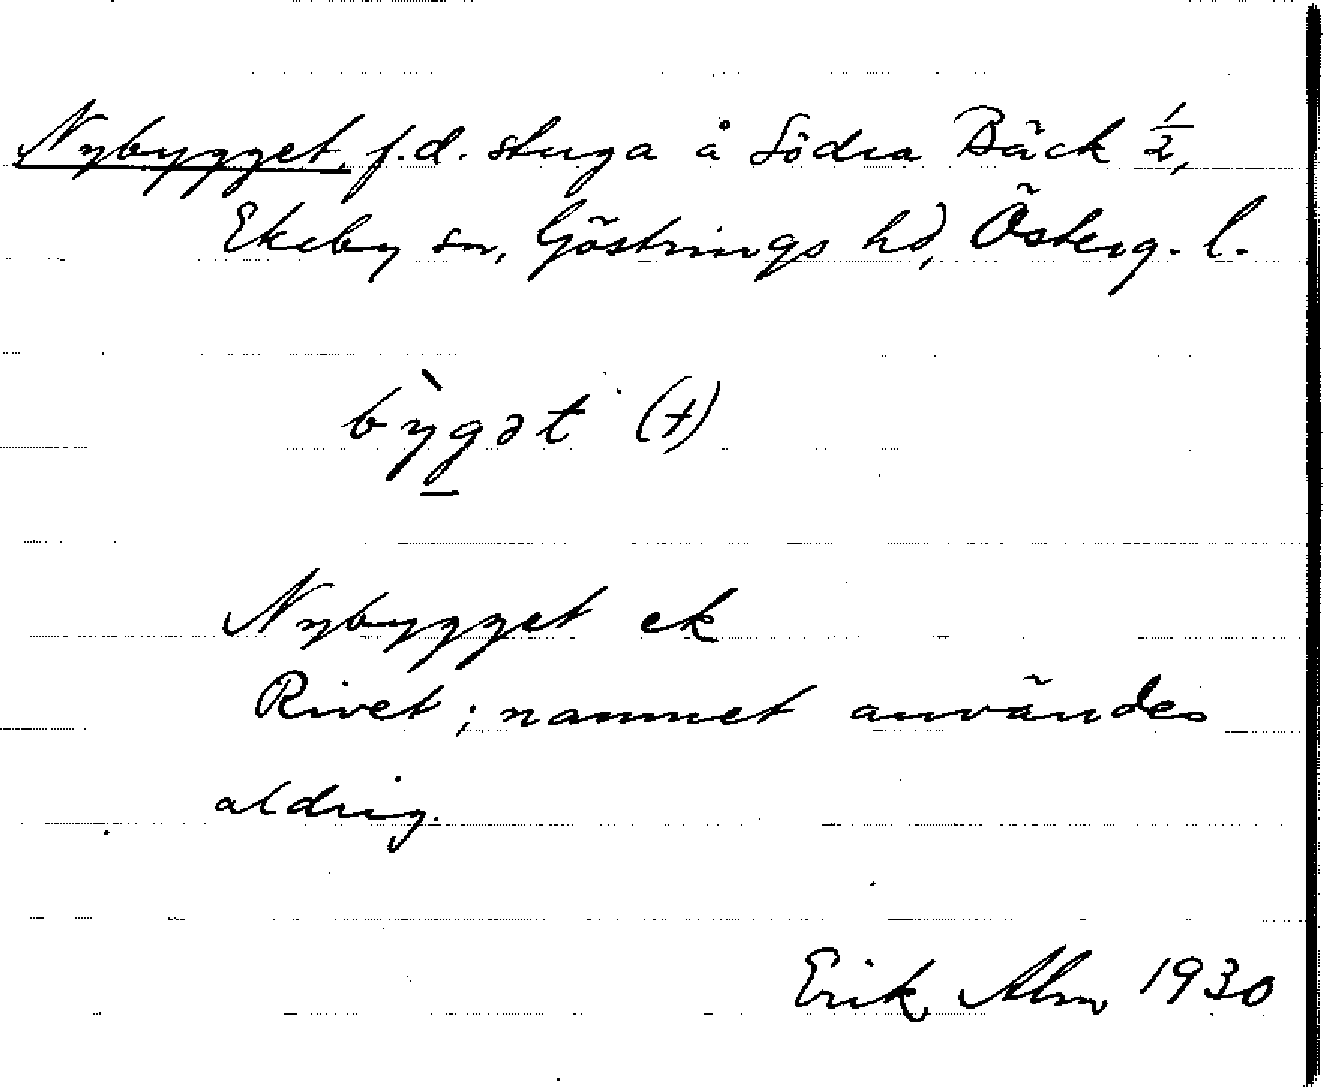 Nybygget, f.d. stuga å Södra Bäck 1/2,
Ekeby sn, Göstrings hd, Österg. l.
bỳgət (+)
Nybygget ek
Rivet; namnet användes
aldrig.
Erik Alm 1930